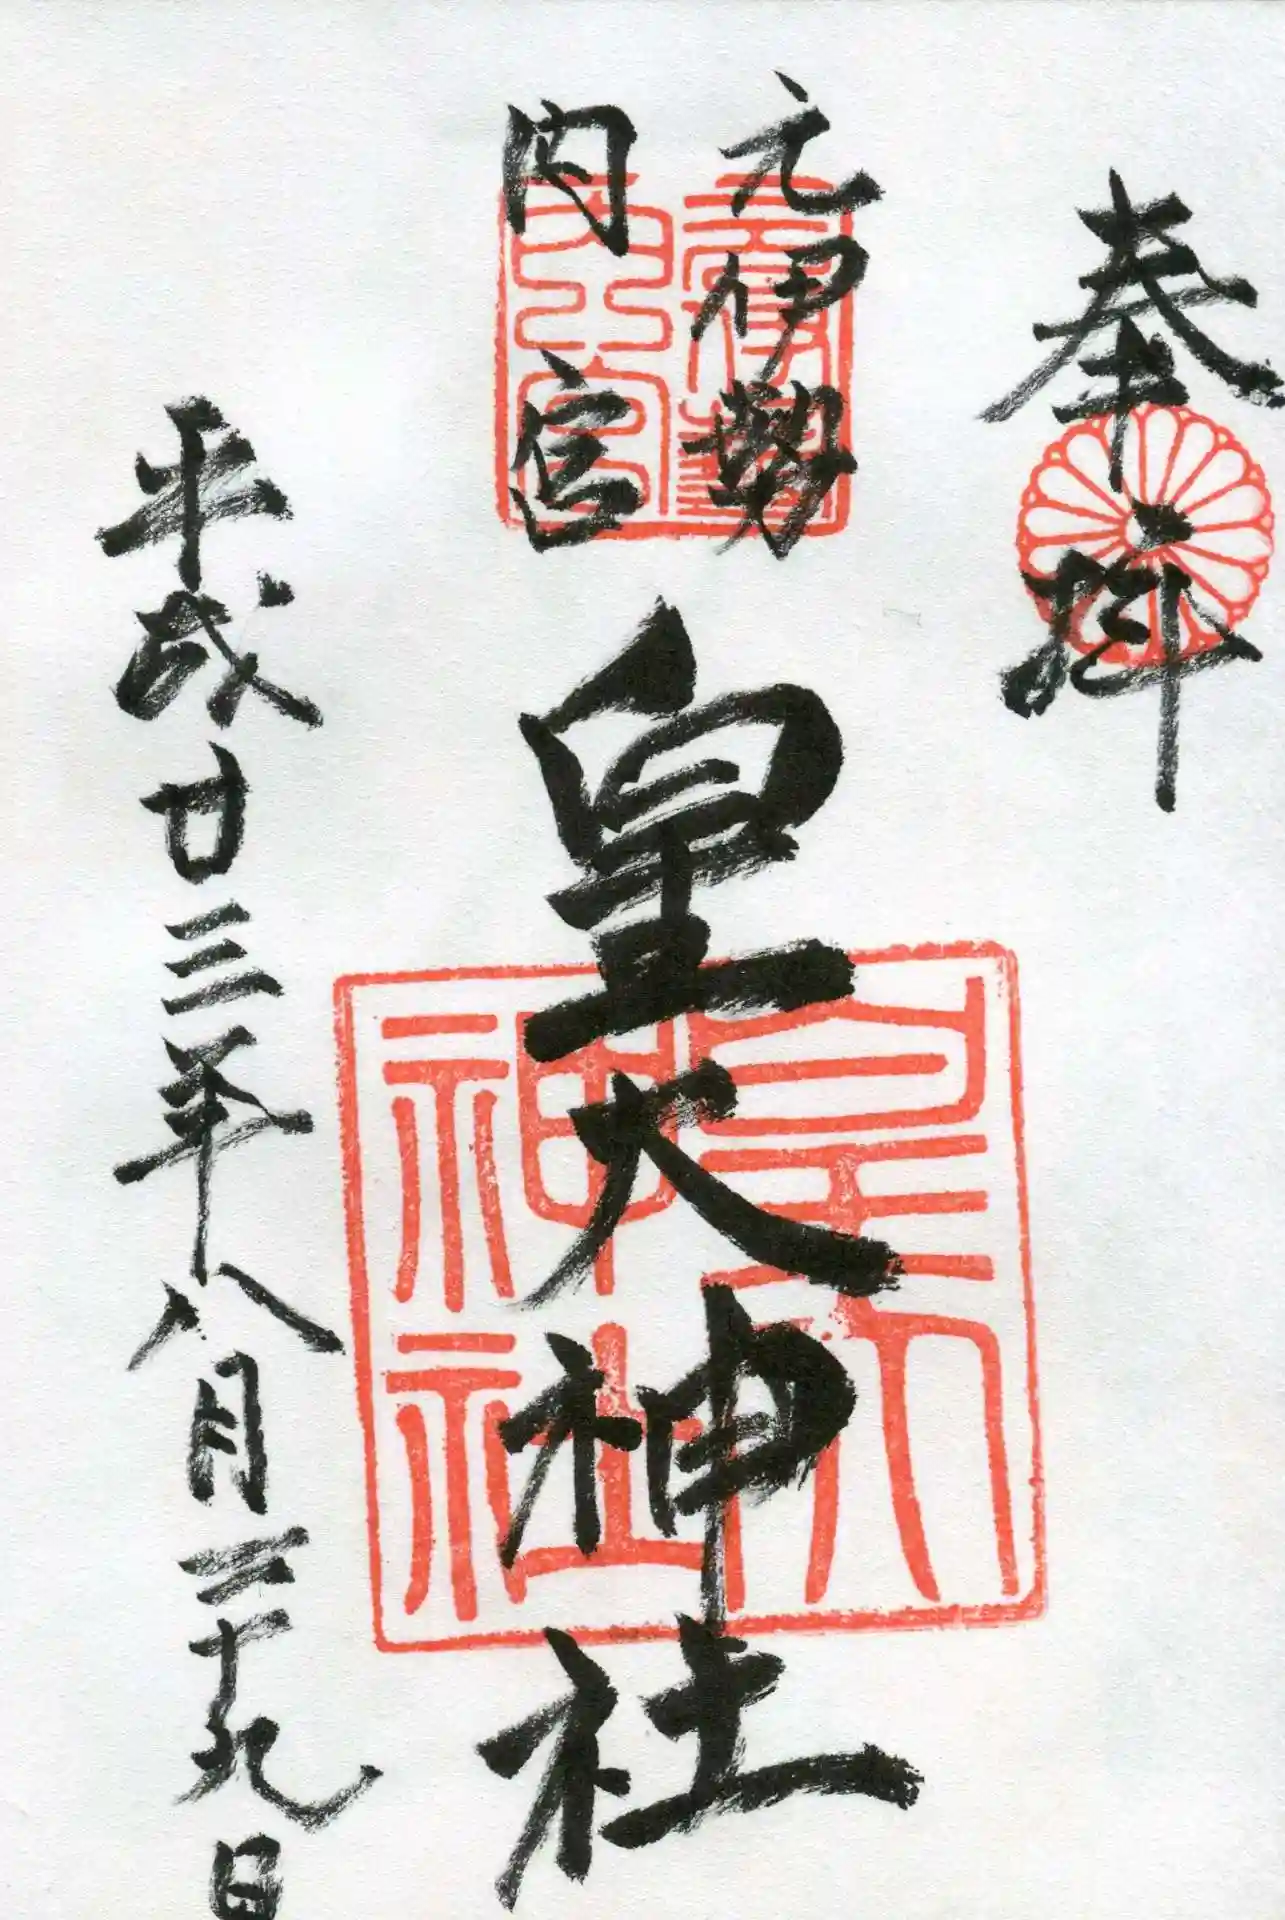 奉拝
元伊勢
内宮
皇大神社
平成廿三年八月二十九日
元伊勢
内宮
皇大
神社